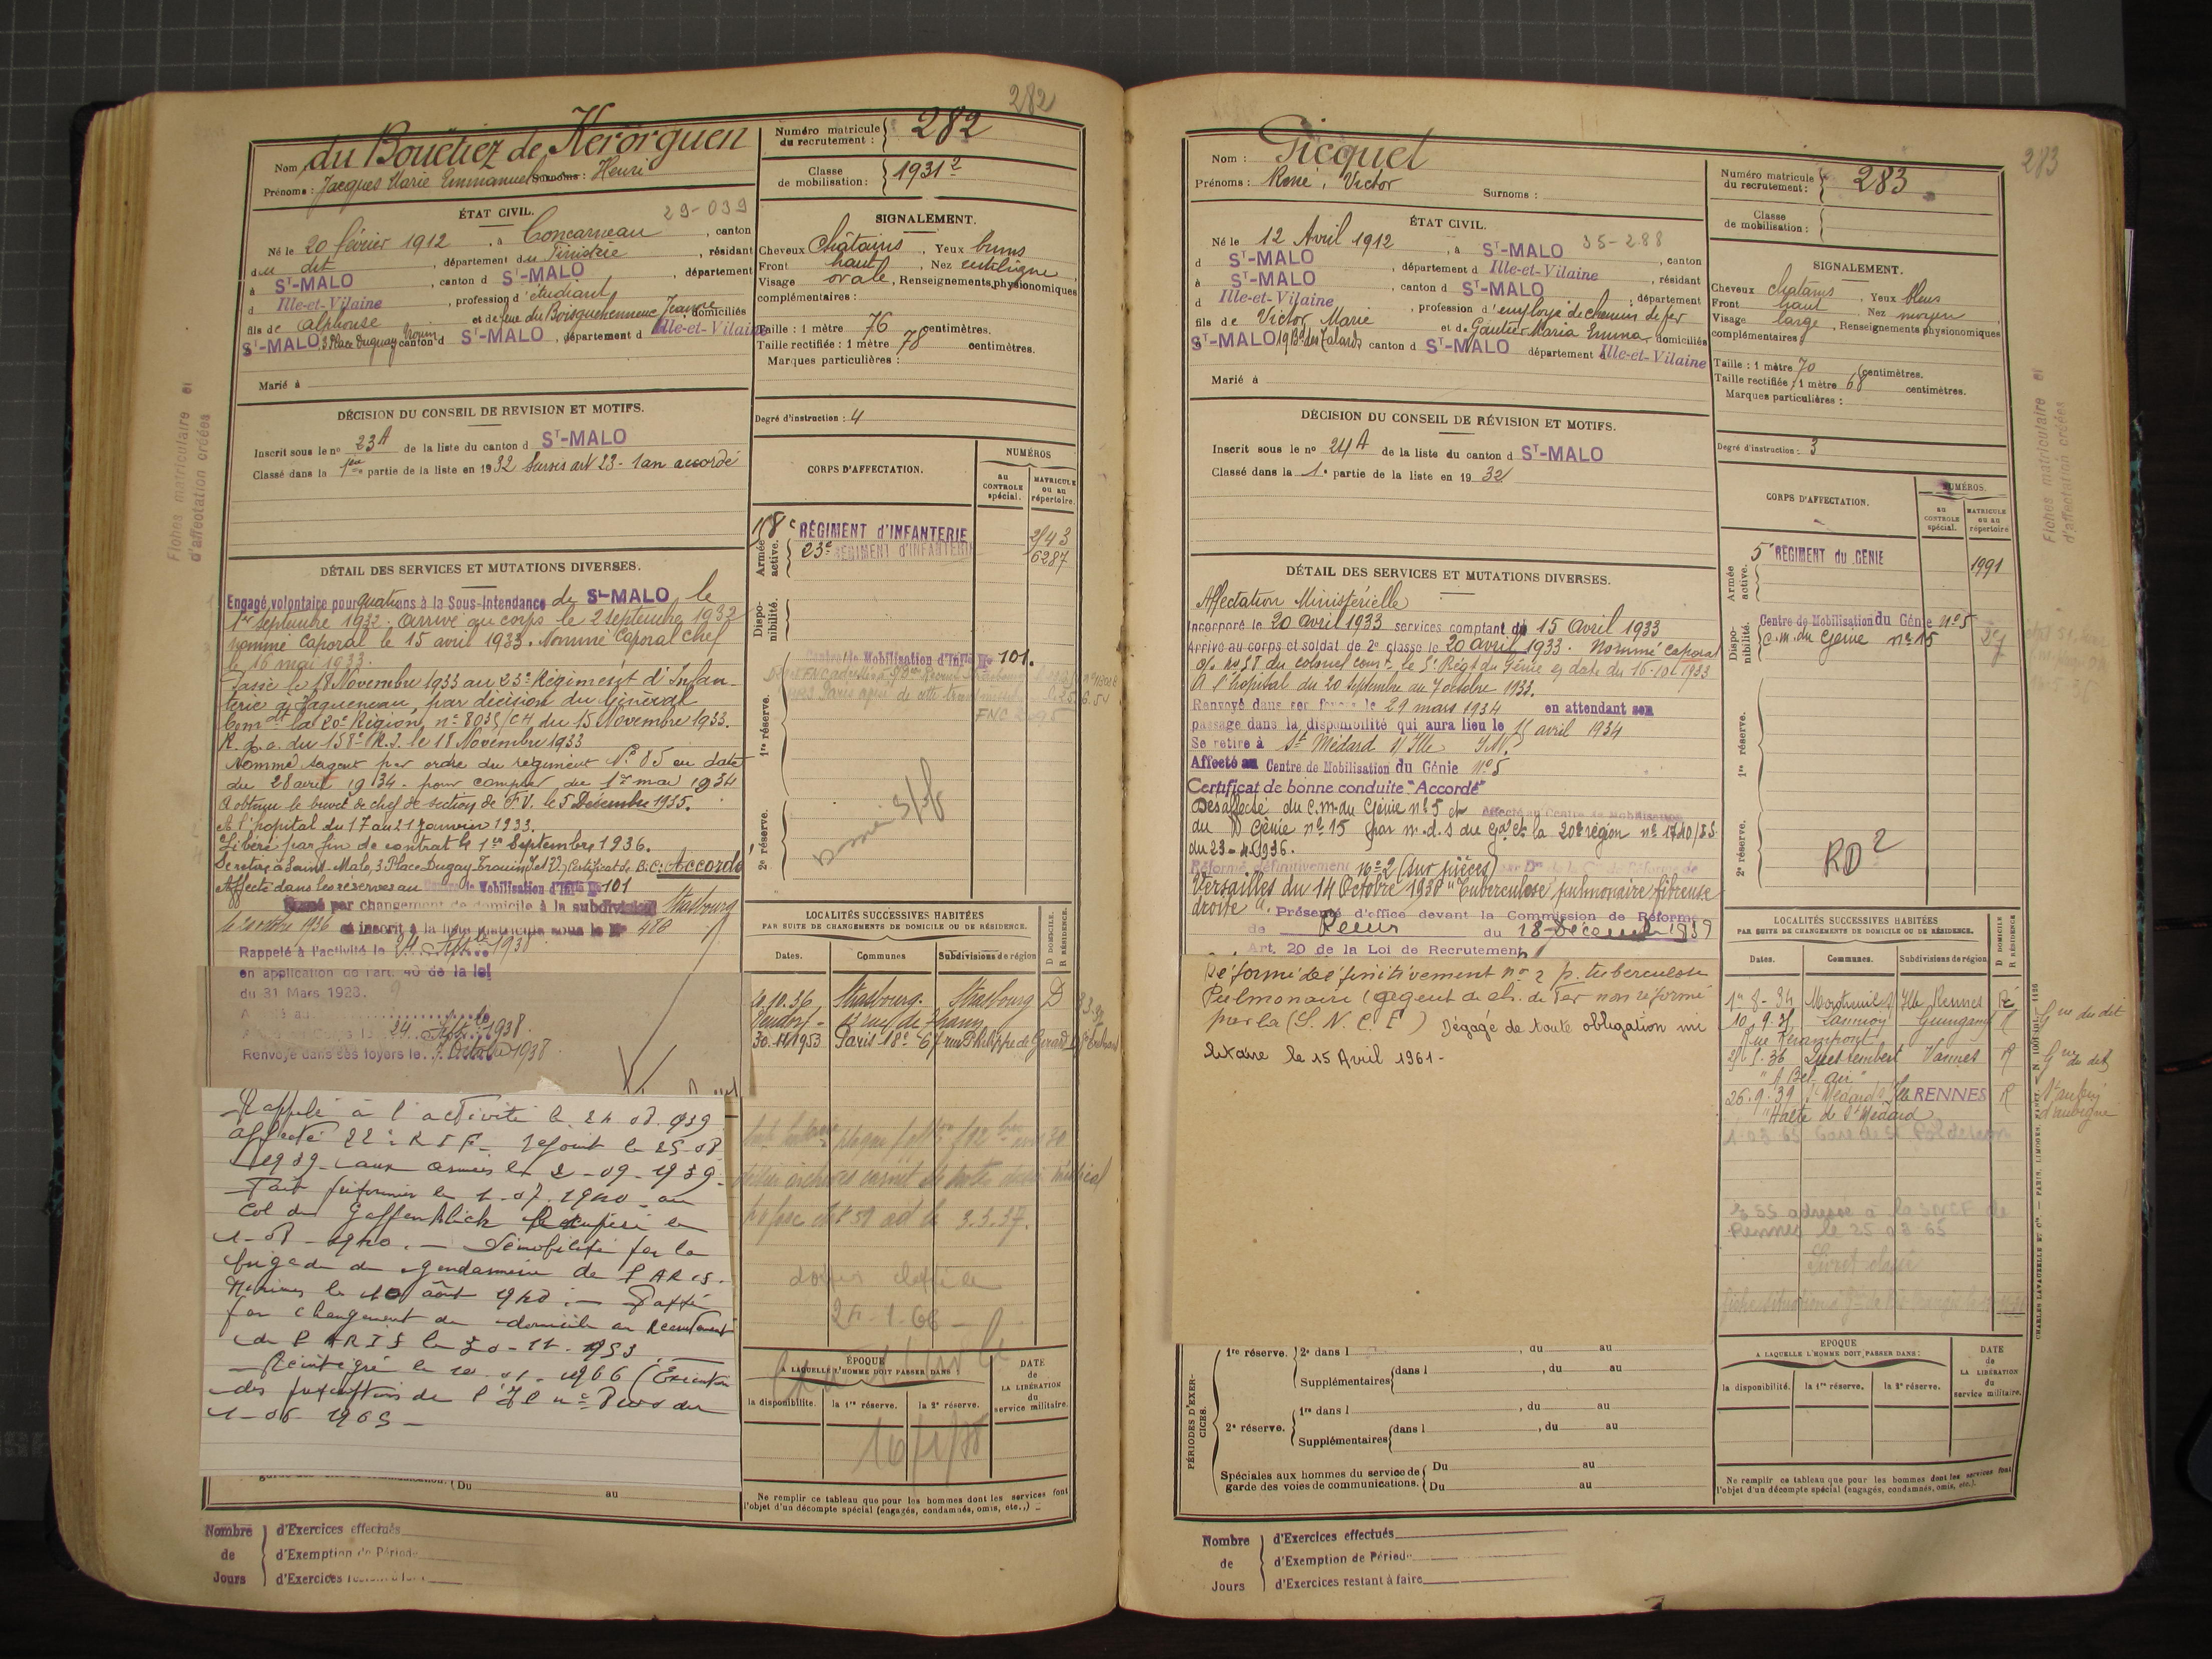 282
Nom : du Bouëtiez de Kerorguen
Prénoms : Jacques Marie Emmanuel Surnoms : Henri
ÉTAT CIVIL. 29-039
Né le 20 février 1912, à Concarneau, canton
du dit, département du Finistère, résidant
à ST-MALO, canton d ST-MALO, département
d Ille-et-Vilaine, profession d'étudiant
fils de Alphonse et de feue du Boisguehenneuc Jeanne domiciliés
ST-MALO 3 Place Duguay Trouin canton d ST-MALO, département d Ille-et-Vilaine
Marié à
DÉCISION DU CONSEIL DE REVISION ET MOTIFS.
Inscrit sous le no 23A de la liste du canton d ST-MALO
Classé dans la 1ère partie de la liste en 1932 Sursis art 23 - 1an accordé
DÉTAIL DES SERVICES ET MUTATIONS DIVERSES.
Engagé volontaire pour quatre ans à la Sous-Intendance de St-MALO le
1er Septembre 1932. Arrivé au corps le 2 septembre 1932
nommé Caporal le 15 avril 1933. Nommé Caporal Chef
le 16 mai 1933.
Passé le 18 Novembre 1933 au 23e Régiment d'Infan-
terie à Haguenau, par décision du Général
Comdt la 20e Région, no 8035/CH du 15 Novembre 1933.
R. d. c. du 158e R.I. le 18 Novembre 1933
Nommé sergent par ordre du régiment No 85 en date
du 28 avril 1934 - pour compter du 1er mai 1934
A obtenu le brevet de chef de section de F.V. le 5 Décembre 1935.
A l'hopital du 17 au 21 Janvier 1933.
Libéré par fin de contrat le 1er Septembre 1936.
Se retire à Saint-Malo, 3 Place Dugay Trouin (I et V) Certificat de B.C. Accordé
Affecté dans les réserves au Centre de Mobilisation d'Infie No 101
Passé par changement de domicile à la subdivision Strasbourg
le 20 octobre 1936 et inscrit à la liste matricule sous le No 486
Rappelé à l'activité le 24 Septbre 1938
en application de l'art. 40 de la loi
du 31 Mars 1928.
24 Septbre 1938.
Renvoyé dans ses foyers le 7 Octobre 1938
Rappelé à l'activité le 24 08 1939
affecté 22e R I F - rejoint le 25-08
1939 - aux armées le 2-09-1939.
Fait prisonnier le 1-07-1940 au
Col du
1-08-1940. - Démobilisé par la
brigade de gendarmerie de PARIS.
Minimes le 10 août 1940. - Passé
par changement de domicile au Recrutement
de PARIS le 30-11-1953
- Réintégré le 10-01-1966 (Exécution
des prescriptions de l'
1-06-1965 -
(Du au
Nombre de Jours
d'Exercices effectués
d'Exemption de Période
d'Exercices restant à faire
Fiches matriculaire et
d'affectation créées
Numéro matricule du recrutement : 282
Classe de mobilisation : 1931 2
SIGNALEMENT.
Cheveux châtains, Yeux bruns
Front haut, Nez rectiligne
Visage ovale, Renseignements physionomiques
complémentaires :
Taille : 1 mètre 76 centimètres.
Taille rectifiée : 1 mètre 78 centimètres.
Marques particulières :
Degré d'instruction : 4
CORPS D'AFFECTATION.
NUMÉROS
au CONTROLE spécial.
MATRICULE ou au répertoire.
Armée active.
158e RÉGIMENT d'INFANTERIE 243
23e RÉGIMENT d'INFANTERIE 6287
Disponibilité.
1re réserve.
Centre de Mobilisation d'Infie No 101.
2e réserve.
LOCALITÉS SUCCESSIVES HABITÉES
PAR SUITE DE CHANGEMENTS DE DOMICILE OU DE RÉSIDENCE.
D DOMICILE. R RÉSIDENCE.
Dates. Communes Subdivisions de région
20.10.36 Strasbourg. Strasbourg D
30.11.1953 Paris 18e 6 rue Philippe de Girard
dossier classé le
24-1-66
ÉPOQUE
A LAQUELLE L'HOMME DOIT PASSER DANS :
la disponibilité. la 1re réserve. la 2e réserve.
DATE de LA LIBÉRATION du service militaire.
Ne remplir ce tableau que pour les hommes dont les services font
l'objet d'un décompte spécial (engagés, condamnés, omis, etc.,)
283
Nom : Picquet
Prénoms : René, Victor Surnoms :
ÉTAT CIVIL.
Né le 12 Avril 1912, à ST-MALO 35-288
d ST-MALO, canton
à ST-MALO, département d Ille-et-Vilaine, résidant
d Ille-et-Vilaine, canton d ST-MALO, département
, profession d'employé de chemin de fer
fils de Victor Marie et de Gautier Maria Emma, domiciliés
ST-MALO 19 Bd des Talards canton d ST-MALO département d Ille-et-Vilaine
Marié à
DÉCISION DU CONSEIL DE RÉVISION ET MOTIFS.
Inscrit sous le no 24A de la liste du canton d ST-MALO
Classé dans la 1e partie de la liste en 1932
DÉTAIL DES SERVICES ET MUTATIONS DIVERSES.
Affectation Ministérielle
Incorporé le 20 avril 1933 services comptant du 15 Avril 1933
Arrivé au corps et soldat de 2e classe le 20 avril 1933. Nommé Caporal
o/r no 58 du colonel comt le 5e Régt du Génie en date du 16-10-1933
A l'hôpital du 20 Septembre au 7 octobre 1933.
Renvoyé dans ses foyers le 29 mars 1934 en attendant son
passage dans la disponibilité qui aura lieu le 15 avril 1934
Se retire à St Médard s/ Ille I&V.
Affecté au Centre de Mobilisation du Génie No 5
Certificat de bonne conduite "Accordé"
Désaffecté du C.m. du Génie no 5 et Affecté au Centre de Mobilisation
du Génie no 15 par m.d.s du Gal Ct la 20e région no 1740/
du 23-4-1936.
Réformé définitivement no 2 (sur pièces) par Don de la Con de Réforme de
Versailles du 14 Octobre 1938 "Tuberculose pulmonaire fibreuse
droite". Présenté d'office devant la Commission de Réforme
de Rennes du 18 décembre 1939
Art. 20 de la Loi de Recrutement
Réformé définitivement no 2 p. tuberculose
Pulmonaire (agent de ch. de Fer non réformé
par la (S.N.C.F) Dégagé de toute obligation mi
litaire le 15 Avril 1961-
PÉRIODES D'EXERCICES.
1re réserve. 2e dans l , du au
Supplémentaires dans l , du au
2e réserve. 1re dans l , du au
Supplémentaires dans l , du au
Spéciales aux hommes du service de garde des voies de communications. Du au
Du au
Nombre de Jours
d'Exercices effectués
d'Exemption de Période
d'Exercices restant à faire
Numéro matricule du recrutement : 283
Classe de mobilisation :
SIGNALEMENT.
Cheveux chatains, Yeux bleus
Front haut, Nez moyen
Visage large, Renseignements physionomiques
complémentaires
Taille : 1 mètre 70 centimètres.
Taille rectifiée : 1 mètre 68 centimètres.
Marques particulières :
Degré d'instruction : 3
CORPS D'AFFECTATION.
NUMÉROS.
au CONTROLE spécial.
MATRICULE ou au répertoire
Armée active.
5e RÉGIMENT du GÉNIE 1991
Disponibilité.
Centre de Mobilisation du Génie no 5
C.m. du Génie no 15
1re réserve.
2e réserve.
RD2
LOCALITÉS SUCCESSIVES HABITÉES
PAR SUITE DE CHANGEMENTS DE DOMICILE OU DE RÉSIDENCE.
D DOMICILE R RÉSIDENCE
Dates. Communes. Subdivisions de région
1er 8-34 Montreuil s/ Ille Rennes R
10.9.35 Lannion Guingamp R Gare du dit
Rue Kerampont
21.1.36 Questembert Vannes R Gare du dit
"A Bel air"
26.9.39 St Médard s/ Ille RENNES R St aubin d'aubigné
"Halte de St Médard"
1-03-65 Gare de St Pol de Léon
adressé à la SNCF de
Rennes le 25 03 65
Livret classé
EPOQUE
A LAQUELLE L'HOMME DOIT PASSER DANS :
la disponibilité. la 1re réserve. la 2e réserve.
DATE de LA LIBÉRATION du service militaire.
Ne remplir ce tableau que pour les hommes dont les services font
l'objet d'un décompte spécial (engagés, condamnés, omis, etc.).
CHARLES LAVAUZELLE ET Cie. — PARIS, LIMOGES, NANCY.
Fiches matriculaire et
d'affectation créées